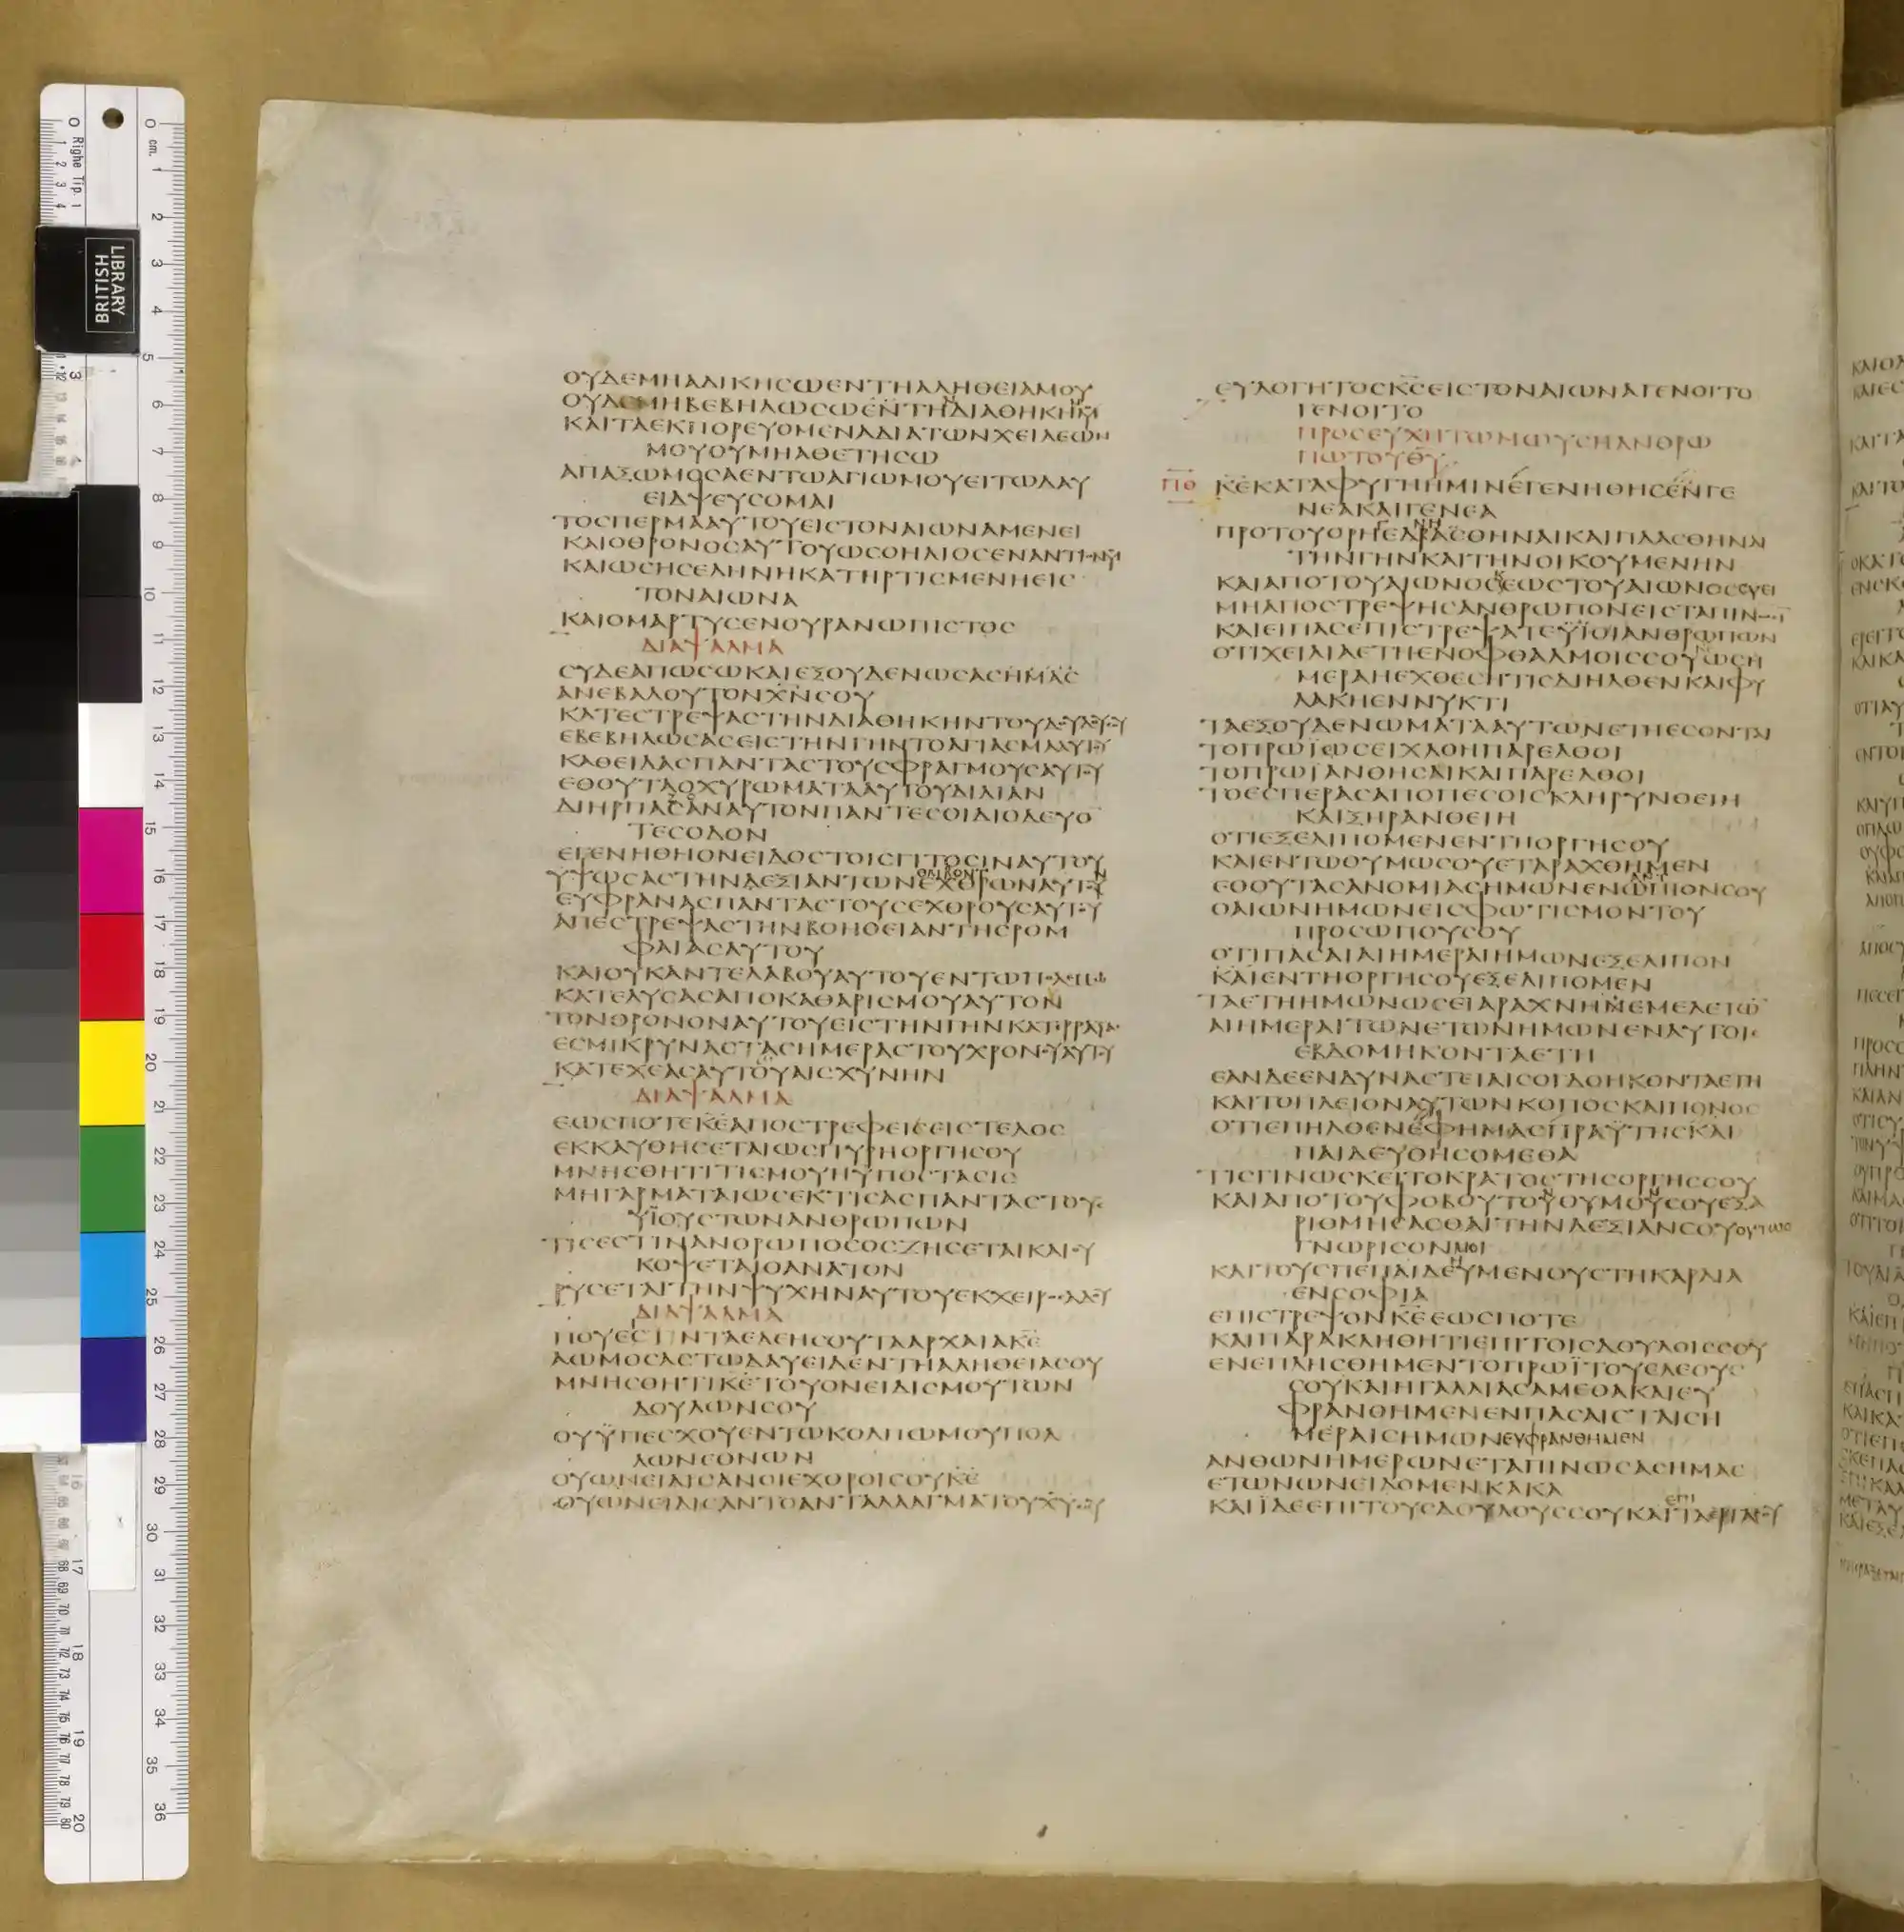 ΟΥΔΕΜΗΑΔΙΚΗСωΕΝΤΗΑΛΗΘΕΙΑΜΟΥ
ΟΥΔΕΜΗΒΕΒΗΛωСωΕΝΤΗΔΙΑΘΗΚΗΜΟΥ
ΚΑΙΤΑΕΚΠΟΡΕΥΟΜΕΝΑΔΙΑΤωΝΧΕΙΛΕωΝ
ΜΟΥΟΥΜΗΑΘΕΤΗСω
ΑΠΑΞωΜΟСΑΕΝΤωΑΓΙωΜΟΥΕΙΤωΔΑΥ
ΕΙΔΨΕΥСΟΜΑΙ
ΤΟСΠΕΡΜΑΑΥΤΟΥΕΙСΤΟΝΑΙωΝΑΜΕΝΕΙ
ΚΑΙΟΘΡΟΝΟСΑΥΤΟΥωСΟΗΛΙΟСΕΝΑΝΤΙΟΝΜΟΥ
ΚΑΙωСΗСΕΛΗΝΗΚΑΤΗΡΤΙСΜΕΝΗΕΙС
ΤΟΝΑΙωΝΑ
ΚΑΙΟΜΑΡΤΥСΕΝΟΥΡΑΝωΠΙСΤΟС
ΔΙΑΨΑΛΜΑ
СΥΔΕΑΠωСωΚΑΙΕΞΟΥΔΕΝωСΑСΗΜΑС
ΑΝΕΒΑΛΟΥΤΟΝΧ̅Ν̅СΟΥ
ΚΑΤΕСΤΡΕΨΑСΤΗΝΔΙΑΘΗΚΗΝΤΟΥΔΟΥΛΟΥСΟΥ
ΕΒΕΒΗΛωСΑСΕΙСΤΗΝΓΗΝΤΟΑΓΙΑСΜΑΑΥΤΟΥ
ΚΑΘΕΙΛΑСΠΑΝΤΑСΤΟΥСΦΡΑΓΜΟΥСΑΥΤΟΥ
ΕΘΟΥΤΑΟΧΥΡωΜΑΤΑΑΥΤΟΥΔΙΛΙΑΝ
ΔΙΗΡΠΑСΑΝΑΥΤΟΝΠΑΝΤΕСΟΙΔΙΟΔΕΥΟ
ΤΕСΟΔΟΝ
ΕΓΕΝΗΘΗΟΝΕΙΔΟСΤΟΙСΓΙΤΟСΙΝΑΥΤΟΥ
ΥΨωСΑСΤΗΝΔΕΞΙΑΝΤωΝΕΧΘΡωΝΑΥΤΟΥ
ΕΥΦΡΑΝΑСΠΑΝΤΑСΤΟΥСΕΧΘΡΟΥСΑΥΤΟΥ
ΑΠΕСΤΡΕΨΑСΤΗΝΒΟΗΘΕΙΑΝΤΗСΡΟΜ
ΦΑΙΑСΑΥΤΟΥ
ΚΑΙΟΥΚΑΝΤΕΛΑΒΟΥΑΥΤΟΥΕΝΤωΠΟΛΕΜω
ΚΑΤΕΛΥСΑСΑΠΟΚΑΘΑΡΙСΜΟΥΑΥΤΟΝ
ΤΟΝΘΡΟΝΟΝΑΥΤΟΥΕΙСΤΗΝΓΗΝΚΑΤΕΡΡΑΞΑ
ΕСΜΙΚΡΥΝΑСΤΑСΗΜΕΡΑСΤΟΥΧΡΟΝΟΥΑΥΤΟΥ
ΚΑΤΕΧΕΑСΑΥΤΟΥΑΙСΧΥΝΗΝ
ΔΙΑΨΑΛΜΑ
ΕωСΠΟΤΕΚ̅Ε̅ΑΠΟСΤΡΕΦΕΙСΕΙСΤΕΛΟС
ΕΚΚΑΥΘΗСΕΤΑΙωСΠΥΡΗΟΡΓΗСΟΥ
ΜΝΗСΘΗΤΙΤΙСΜΟΥΗΥΠΟСΤΑСΙС
ΜΗΓΑΡΜΑΤΑΙωСΕΚΤΙСΑСΠΑΝΤΑСΤΟΥС
ΥΪΟΥСΤωΝΑΝΘΡωΠωΝ
ΤΙСΕСΤΙΝΑΝΘΡωΠΟСΟСΖΗСΕΤΑΙΚΑΙΟΥ
ΚΟΨΕΤΑΙΘΑΝΑΤΟΝ
ΡΥСΕΤΑΙΤΗΝΨΥΧΗΝΑΥΤΟΥΕΚΧΕΙΡΟСΑΔΟΥ
ΔΙΑΨΑΛΜΑ
ΠΟΥΕСΤΙΝΤΑΕΛΕΗСΟΥΤΑΑΡΧΑΙΑΚ̅Ε̅
ΑωΜΟСΑСΤωΔΑΥΕΙΔΕΝΤΗΑΛΗΘΕΙΑСΟΥ
ΜΝΗСΘΗΤΙΚ̅Ε̅ΤΟΥΟΝΕΙΔΙСΜΟΥΤωΝ
ΔΟΥΛωΝСΟΥ
ΟΥΫΠΕСΧΟΥΕΝΤωΚΟΛΠωΜΟΥΠΟΛ
ΛωΝΕΘΝωΝ
ΟΥωΝΕΙΔΙСΑΝΟΙΕΧΘΡΟΙСΟΥΚ̅Ε̅
ΟΥωΝΕΙΔΙСΑΝΤΟΑΝΤΑΛΛΑΓΜΑΤΟΥΧ̅Υ̅СΟΥ
ΕΥΛΟΓΗΤΟСΚ̅С̅ΕΙСΤΟΝΑΙωΝΑΓΕΝΟΙΤΟ
ΓΕΝΟΙΤΟ
ΠΡΟСΕΥΧΗΤωΜωΥСΗΑΝΘΡω
ΠωΤΟΥΘ̅Υ̅
ΠΘ Κ̅Ε̅ΚΑΤΑΦΥΓΗΗΜΙΝΕΓΕΝΗΘΗСΕΝΓΕ
ΝΕΑΚΑΙΓΕΝΕΑ
ΠΡΟΤΟΥΟΡΗΕΔΡΑСΘΗΝΑΙΚΑΙΠΛΑСΘΗΝΑΙ
ΤΗΝΓΗΝΚΑΙΤΗΝΟΙΚΟΥΜΕΝΗΝ
ΚΑΙΑΠΟΤΟΥΑΙωΝΟСΕωСΤΟΥΑΙωΝΟССΥΕΙ
ΜΗΑΠΟСΤΡΕΨΗСΑΝΘΡωΠΟΝΕΙСΤΑΠΙΝωСΙ
ΚΑΙΕΙΠΑСΕΠΙСΤΡΕΨΑΤΕΫΪΟΙΑΝΘΡωΠωΝ
ΟΤΙΧΕΙΛΙΑΕΤΗΕΝΟΦΘΑΛΜΟΙССΟΥωСΗ
ΜΕΡΑΗΕΧΘΕСΗΤΙСΔΙΗΛΘΕΝΚΑΙΦΥ
ΛΑΚΗΕΝΝΥΚΤΙ
ΤΑΕΞΟΥΔΕΝωΜΑΤΑΑΥΤωΝΕΤΗΕСΟΝΤΑΙ
ΤΟΠΡωΪωСΕΙΧΛΟΗΠΑΡΕΛΘΟΙ
ΤΟΠΡωΪΑΝΘΗСΑΙΚΑΙΠΑΡΕΛΘΟΙ
ΤΟΕСΠΕΡΑСΑΠΟΠΕСΟΙСΚΛΗΡΥΝΘΕΙΗ
ΚΑΙΞΗΡΑΝΘΕΙΗ
ΟΤΙΕΞΕΛΙΠΟΜΕΝΕΝΤΗΟΡΓΗСΟΥ
ΚΑΙΕΝΤωΘΥΜωСΟΥΕΤΑΡΑΧΘΗΜΕΝ
ΕΘΟΥΤΑСΑΝΟΜΙΑСΗΜωΝΕΝωΠΙΟΝСΟΥ
ΟΑΙωΝΗΜωΝΕΙСΦωΤΙСΜΟΝΤΟΥ
ΠΡΟСωΠΟΥСΟΥ
ΟΤΙΠΑСΑΙΑΙΗΜΕΡΑΙΗΜωΝΕΞΕΛΙΠΟΝ
ΚΑΙΕΝΤΗΟΡΓΗСΟΥΕΞΕΛΙΠΟΜΕΝ
ΤΑΕΤΗΗΜωΝωСΕΙΑΡΑΧΝΗΝΕΜΕΛΕΤω
ΑΙΗΜΕΡΑΙΤωΝΕΤωΝΗΜωΝΕΝΑΥΤΟΙС
ΕΒΔΟΜΗΚΟΝΤΑΕΤΗ
ΕΑΝΔΕΕΝΔΥΝΑСΤΕΙΑΙСΟΓΔΟΗΚΟΝΤΑΕΤΗ
ΚΑΙΤΟΠΛΕΙΟΝΑΥΤωΝΚΟΠΟСΚΑΙΠΟΝΟС
ΟΤΙΕΠΗΛΘΕΝΕΦΗΜΑСΠΡΑΫΤΗСΚΑΙ
ΠΑΙΔΕΥΘΗСΟΜΕΘΑ
ΤΙСΓΙΝωСΚΕΙΤΟΚΡΑΤΟСΤΗСΟΡΓΗССΟΥ
ΚΑΙΑΠΟΤΟΥΦΟΒΟΥΤΟΥΘΥΜΟΥСΟΥΕΞΑ
ΡΙΘΜΗСΑСΘΑΙΤΗΝΔΕΞΙΑΝСΟΥΟΥΤωС
ΓΝωΡΙСΟΝΜΟΙ
ΚΑΙΤΟΥСΠΕΠΑΙΔΕΥΜΕΝΟΥСΤΗΚΑΡΔΙΑ
ΕΝСΟΦΙΑ
ΕΠΙСΤΡΕΨΟΝΚ̅Ε̅ΕωСΠΟΤΕ
ΚΑΙΠΑΡΑΚΛΗΘΗΤΙΕΠΙΤΟΙСΔΟΥΛΟΙССΟΥ
ΕΝΕΠΛΗСΘΗΜΕΝΤΟΠΡωΪΤΟΥΕΛΕΟΥС
СΟΥΚΑΙΗΓΑΛΛΙΑСΑΜΕΘΑΚΑΙΕΥ
ΦΡΑΝΘΗΜΕΝΕΝΠΑСΑΙСΤΑΙСΗ
ΜΕΡΑΙСΗΜωΝΕΥΦΡΑΝΘΗΜΕΝ
ΑΝΘωΝΗΜΕΡωΝΕΤΑΠΙΝωСΑСΗΜΑС
ΕΤωΝωΝΕΙΔΟΜΕΝΚΑΚΑ
ΚΑΙΪΔΕΕΠΙΤΟΥСΔΟΥΛΟΥССΟΥΚΑΙΤΑΕΡΓΑСΟΥ
LIBRARY
BRITISH